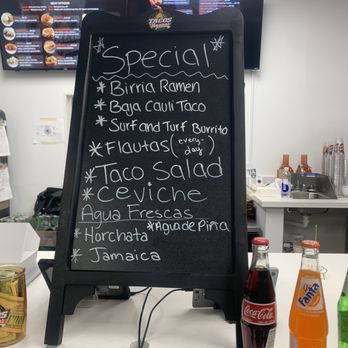 TACOS
*Special*
* Birria Ramen
* Baja Cauli Taco
* Surf and Turf Burrito
* Flautas (every-day)
* Taco Salad
* Ceviche
Agua Frescas
* Horchata * Agua de Piña
* Jamaica
Coca-Cola
Fanta